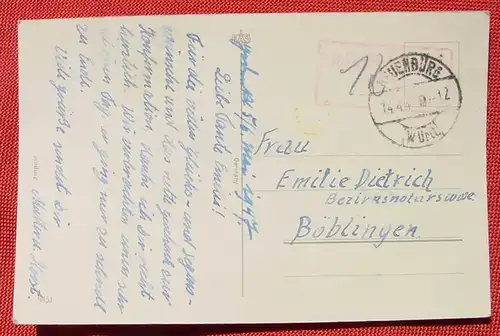 Liebe Tante Emma!
Für die vielen Glück- und Segens-
wünsche und das nette Geschenk zur
Konfirmation, danke ich Dir recht
herzlich. Wir verbrachten einen sehr
schönen Tag, er ging nur zu schnell
zu Ende.
Viele Grüße sendet Dir
Horst.
NEUENBURG
14.4.4
-12
(WÜRTT.)
Frau
Emilie Dietrich
Bezirksnotarswwe.
Böblingen
Germany